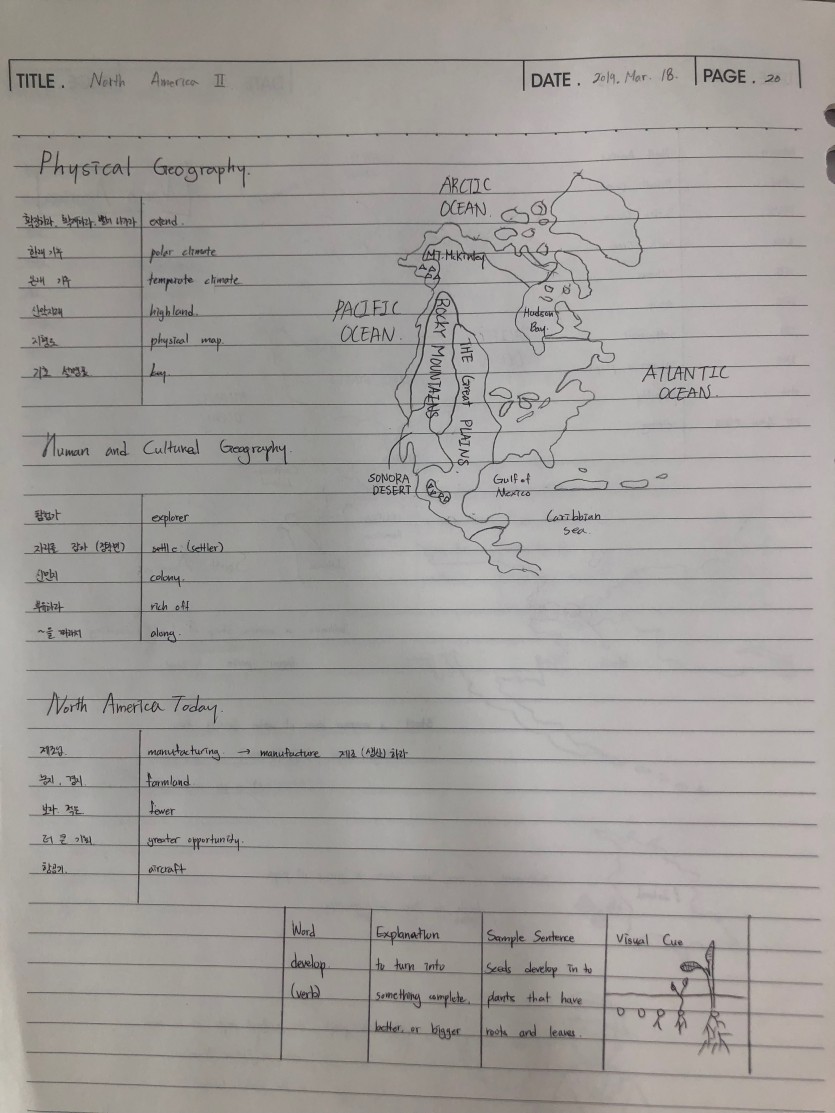 TITLE. North America II
DATE. 2019. Mar. 18.
PAGE. 20
Physical Geography.
확장하다, 확대하다, 뻗어 나가다 extend.
한대 기후 polar climate
온대 기후 temperate climate
산악지대 highland.
지형도 physical map.
기호 설명표 key.
ARCTIC
OCEAN.
MT. McKinley
PACIFIC
OCEAN.
ROCKY MOUNTAINS
THE Great PLAINS.
Hudson
Bay.
ATLANTIC
OCEAN.
SONORA
DESERT
Gulf of
Mexico
Caribbian
sea.
Human and Cultural Geography.
탐험가 explorer
자리를 잡다 (정착민) settle. (settler)
식민지 colony.
rich off
~을 따라서 along.
North America Today.
제조업 manufacturing → manufacture 제조(생산)하다
농지, 경지 farmland
보다 적은 fewer
더 큰 기회 greater opportunity.
항공기 aircraft
Word Explanation Sample Sentence Visual Cue
develop to turn into Seeds develop in to
(verb) something complete, plants that have
better, or bigger roots and leaves.